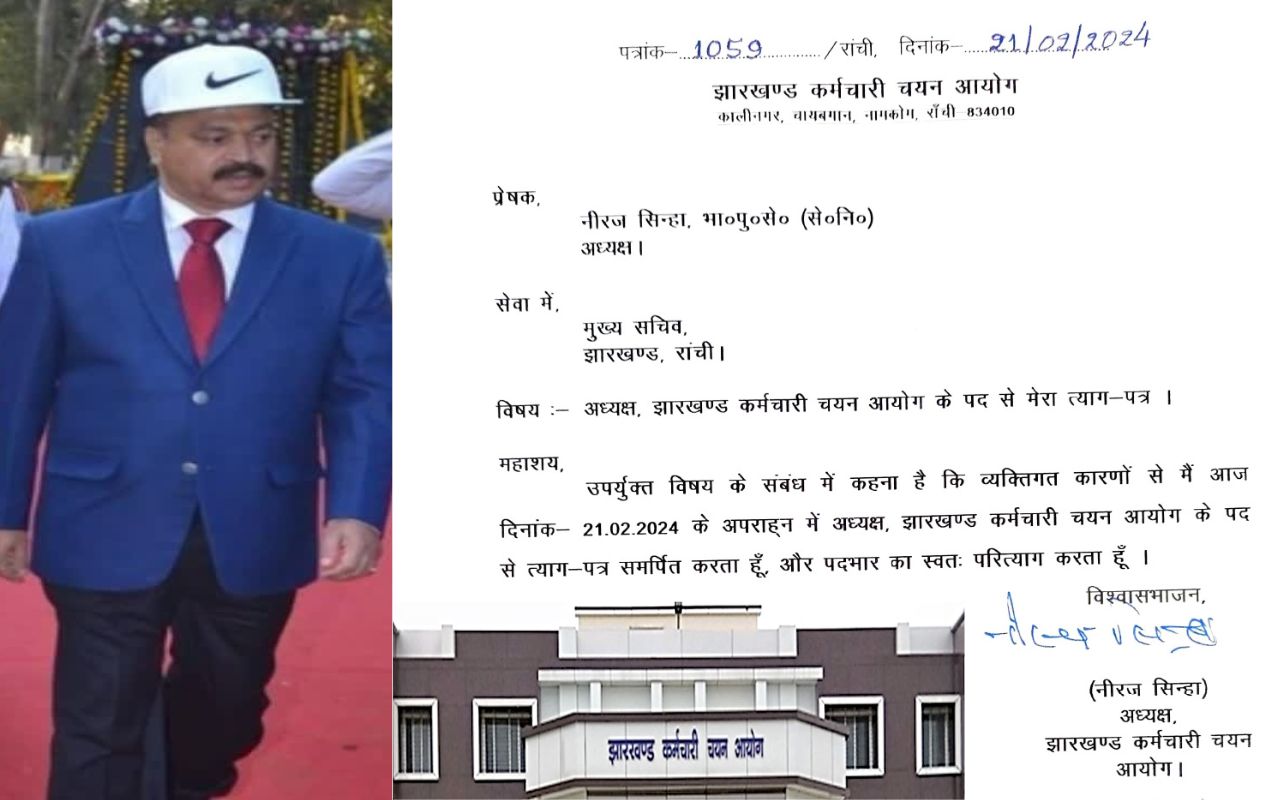 पत्रांक– 1059 / रांची, दिनांक– 21/02/2024
झारखण्ड कर्मचारी चयन आयोग
कालीनगर, चायबगान, नामकोम, राँची–834010
प्रेषक,
नीरज सिन्हा, भा०पु०से० (से०नि०)
अध्यक्ष।
सेवा में,
मुख्य सचिव,
झारखण्ड, रांची।
विषय :– अध्यक्ष, झारखण्ड कर्मचारी चयन आयोग के पद से मेरा त्याग–पत्र ।
महाशय,
उपर्युक्त विषय के संबंध में कहना है कि व्यक्तिगत कारणों से मैं आज
दिनांक– 21.02.2024 के अपराह्न में अध्यक्ष, झारखण्ड कर्मचारी चयन आयोग के पद
से त्याग–पत्र समर्पित करता हूँ, और पदभार का स्वतः परित्याग करता हूँ ।
विश्वासभाजन,
(नीरज सिन्हा)
अध्यक्ष,
झारखण्ड कर्मचारी चयन
आयोग।
झारखण्ड कर्मचारी चयन आयोग